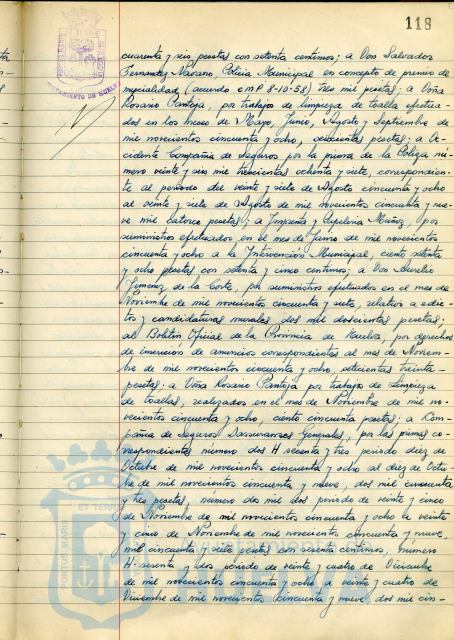 118
cuarenta y seis pesetas con setenta centimos; a Don Salvador
Fernandez Navarro, Policia Municipal en concepto de premio de
especialidad (acuerdo CMP 8-10-58) tres mil pesetas; a Doña
Rosario Pantoja, por trabajos de limpieza de toalla efectua-
dos en los meses de Mayo, Junio, Agosto y Septiembre de
mil novecientos cincuenta y ocho, pesetas; a Oc-
cidente Compañia de Seguros por la prima de la Poliza nú-
mero veinte y seis mil trescientas ochenta y siete, correspondien-
te al periodo del veinte y siete de Agosto cincuenta y ocho
al veinte y siete de Agosto de mil novecientos cincuenta y nue-
ve mil catorce pesetas; a Imprenta y Papeleria Muñoz, por
suministros efectuados, en el mes de Junio de mil novecientos
cincuenta y ocho a la Intervención Municipal, ciento setenta
y ocho pesetas con setenta y cinco centimos; a Don Aurelio
Jimenez de la Corte, por suministros efectuados en el mes de
Noviembre de mil novecientos cincuenta y siete, relativo a edic-
tos y candidaturas murales, dos mil doscientas pesetas;
al Boletin Oficial de la Provincia de Huelva, por derechos
de inserción de anuncios correspondientes al mes de Noviem-
bre de mil novecientos cincuenta y ocho, setecientas treinta
pesetas; a Doña Rosario Pantoja por trabajos de Limpieza
de toallas, realizados en el mes de Noviembre de mil no-
vecientos cincuenta y ocho, ciento cincuenta pesetas; a Com-
pañia de Seguros Generales, por las primas co-
rrespondientes numero dos H sesenta y tres periodo diez de
Octubre de mil novecientos cincuenta y ocho al diez de Octu-
bre de mil novecientos cincuenta y nueve, dos mil cincuenta
y tres pesetas, número dos mil dos periodo de veinte y cinco
de Noviembre de mil novecientos cincuenta y ocho a veinte
y cinco de Noviembre de mil novecientos cincuenta y nueve,
mil cincuenta y siete pesetas con sesenta centimos, numero
H-sesenta y dos periodo de veinte y cuatro de Diciembre
de mil novecientos cincuenta y ocho a veinte y cuatro de
Diciembre de mil novecientos cincuenta y nueve, dos mil cin-